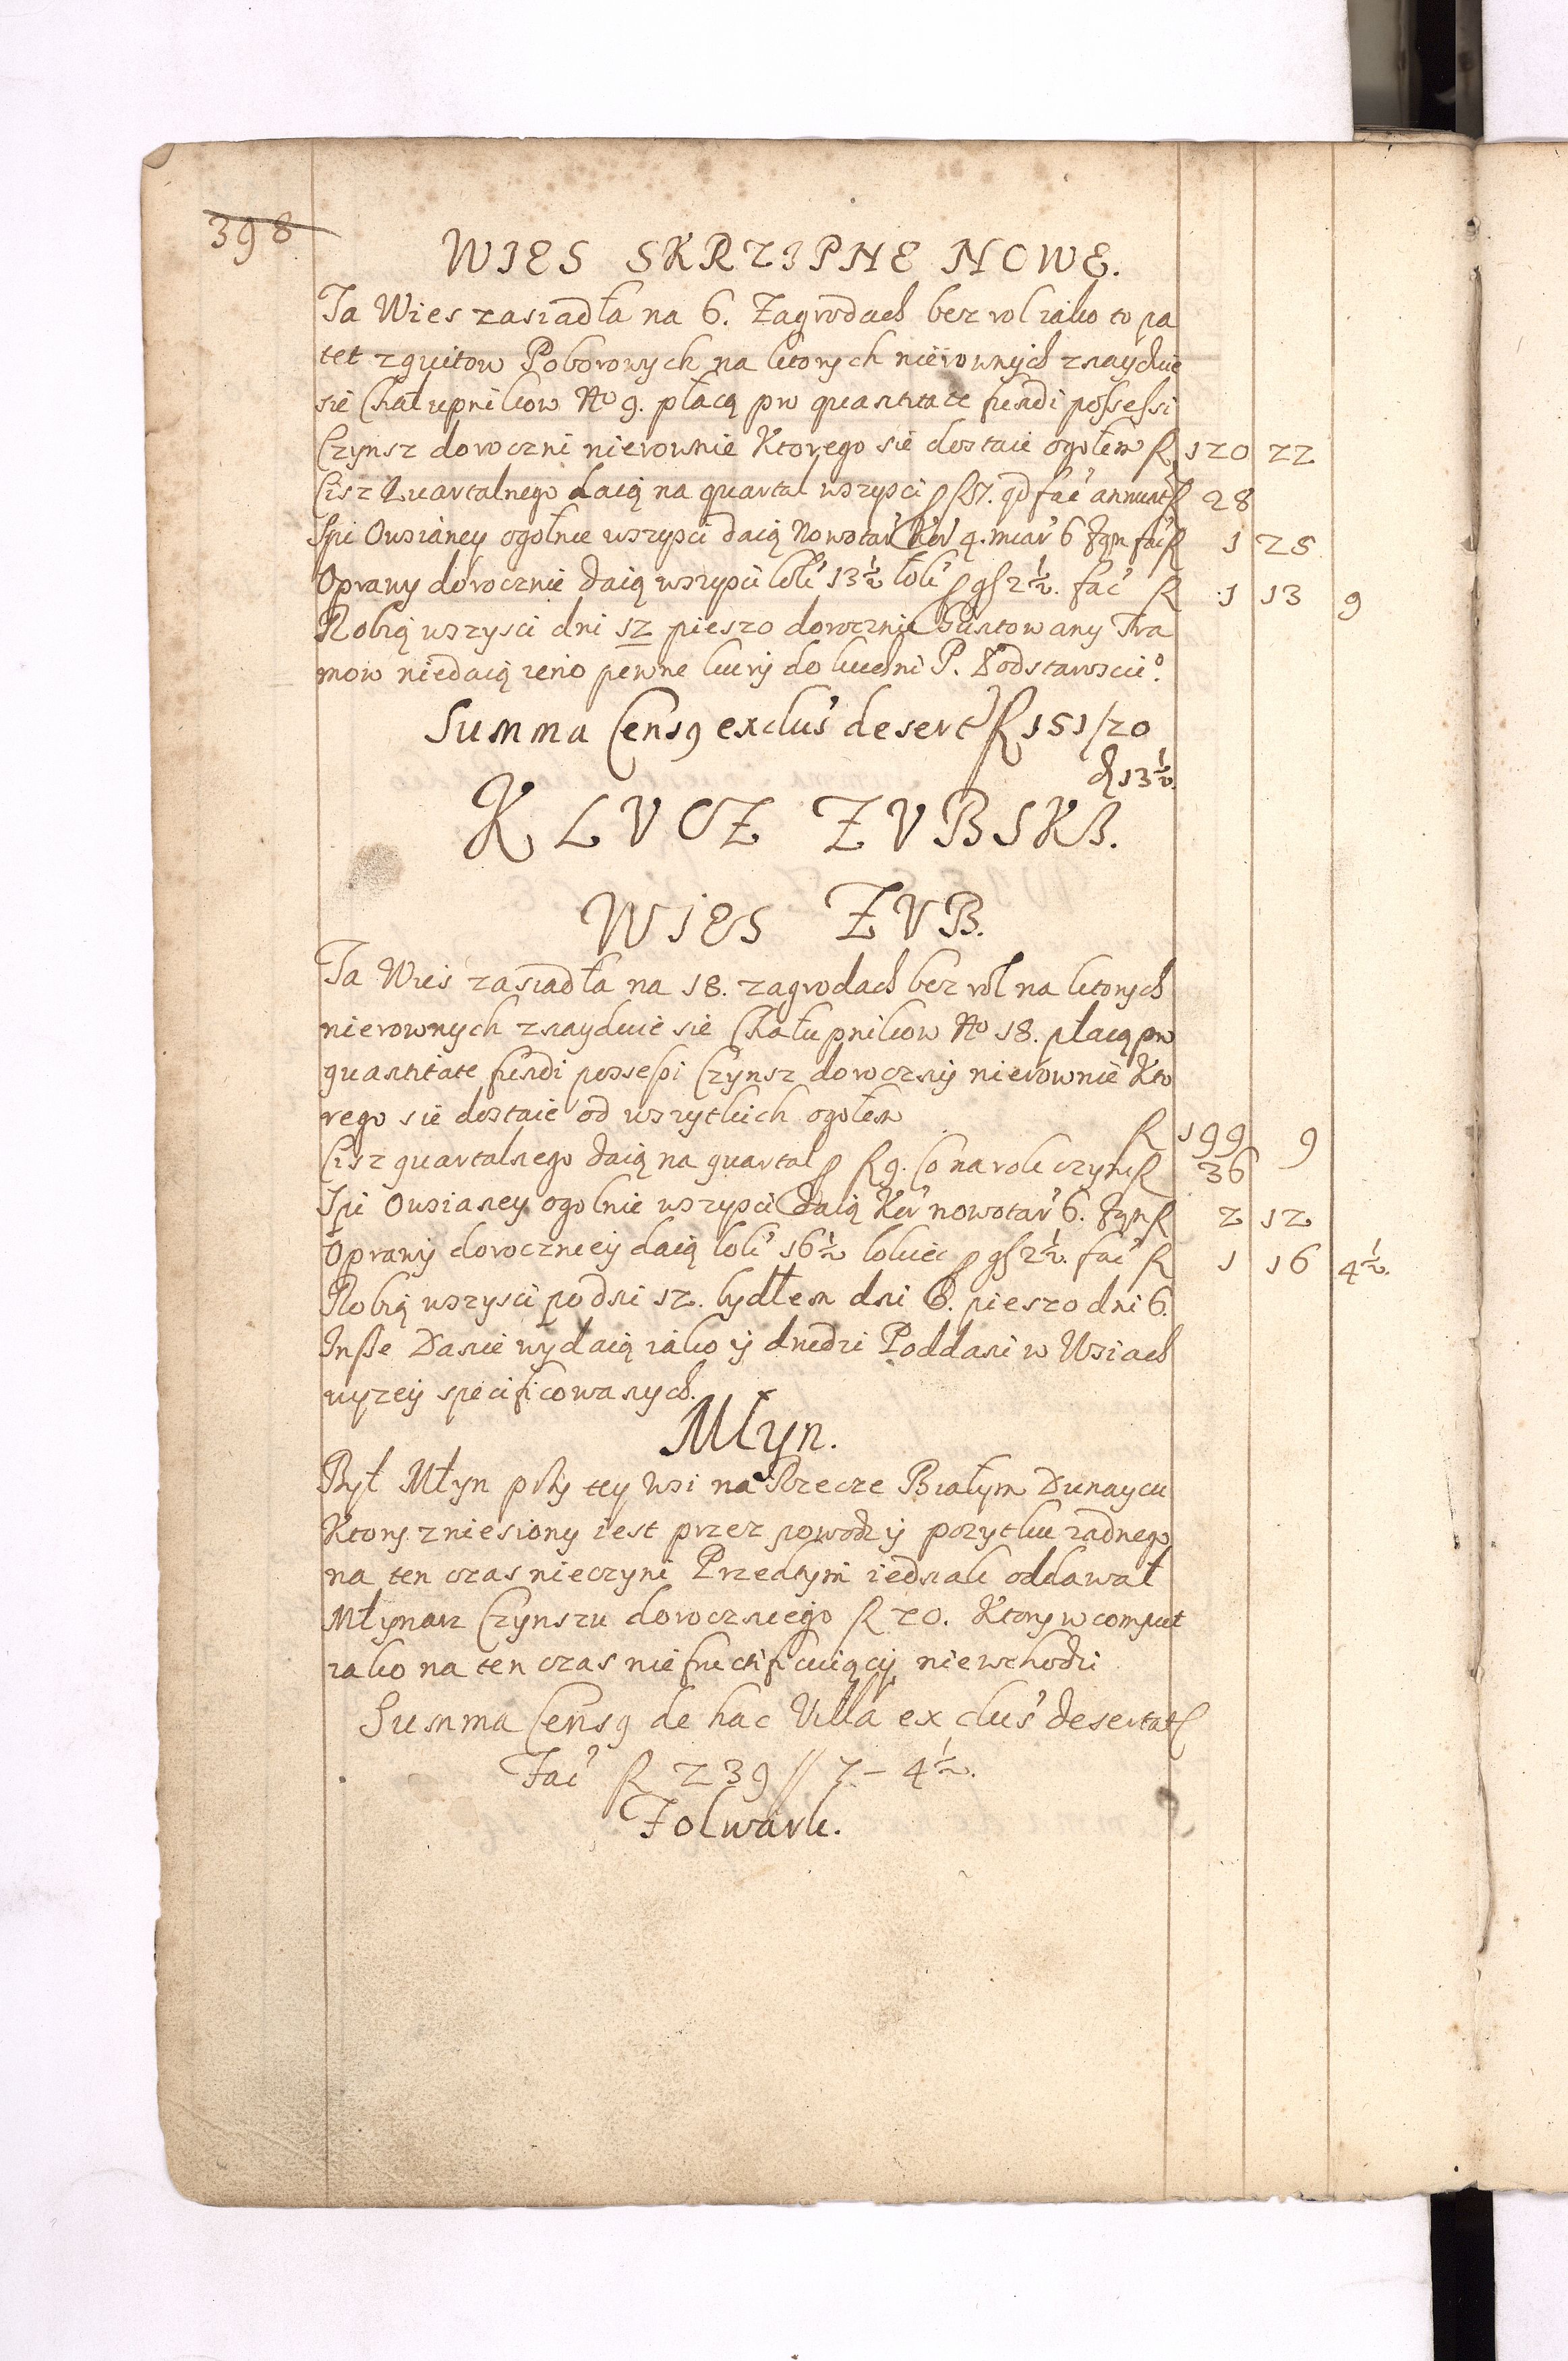 398
WIES SKRZIPNE NOWE.
Ta Wies zasiadła na 6. Zagrodach bez rol iako to pa
tet z quitow Poborowych na ktorych nierownych znayduie
sie Chałupnikow No 9. płacą pro quantitate fundi possessi
Czynsz doroczni nierownie Ktorego sie dostaie ogołem R 120 22
Cisz Quartalnego daią na quartał wszysci p R 7. qd fać annuat R 28
Spi Owsianey ogołnie wszysci daią Nowotar Kor 4. miar 6 Fzyn fać R 1 25
Oprawy dorocznie daią wszysci łok 13½ łok p gſ 2½. fać R 1 13 9
Robią wszysci dni 12 pieszo dorocznie Gustowany Tra
mow niedaią ieno pewne kury do kuchni P. Podstarosciео.
Summa Censq exclus desert R 151/20
d 13½.
KLVCZ ZVBSKI.
WIES ZVB.
Ta Wies zasiadła na 18. zagrodach bez rol na ktorych
nierownych znayduie sie Chałupnikow No 18. płacą pro
quantitate fundi possessi Czynsz doroczny nierownie Kto
rego sie dostaie od wszytkich ogołem R 199 9
Cisz quartalnego daią na quartał p R 9. Co na rok czyni R 36
Spi Owsianey ogolnie wszysci daią Kor nowotar 6. Fzyn R 2 12
Oprawy doroczniey daią łok 16½ łokiec p gſ 2½. fać R 1 16 4½.
Robią wszysci po dni 12. bydłem dni 6. pieszo dni 6.
Insze Danie wydaią iako y drudzi Poddani w Wsiach
wyzey specificowanych.
Młyn.
Był Młyn przy tey Wsi na Rzecze Białym Dunaycu
Ktory zniesiony iest przez powodz y pozytku zadnego
na ten czas nieczyni Przedtym iednak oddawał
Młynarz Czynszu dorocznego R 20. Ktory w comput
iako na ten czas nie fructificuiący niewchodzi
Summa Censq de hac Villa exclus desertat
Fać R 239 // 7 - 4½.
Folwark.